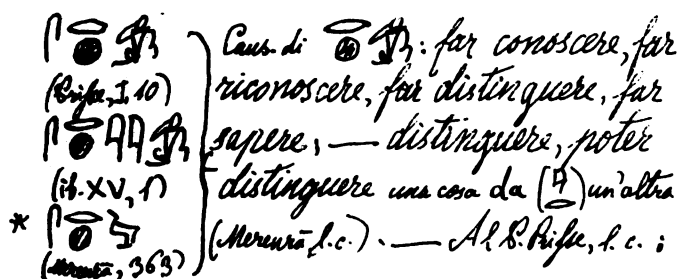 𓋴𓂋𓐍
(Prisse, I, 10)
𓋴𓂋𓐍𓇋𓇋
(ib. XV, 1)
* 𓋴𓂋𓐍
(Merenrā, 363)
Caus. di 𓂋𓐍 : far conoscere, far
riconoscere, far distinguere, far
sapere, — distinguere, poter
distinguere una cosa da (𓇋𓂋) un'altra
(Merenrā, l. c.). — Al P. Prisse, l. c. :